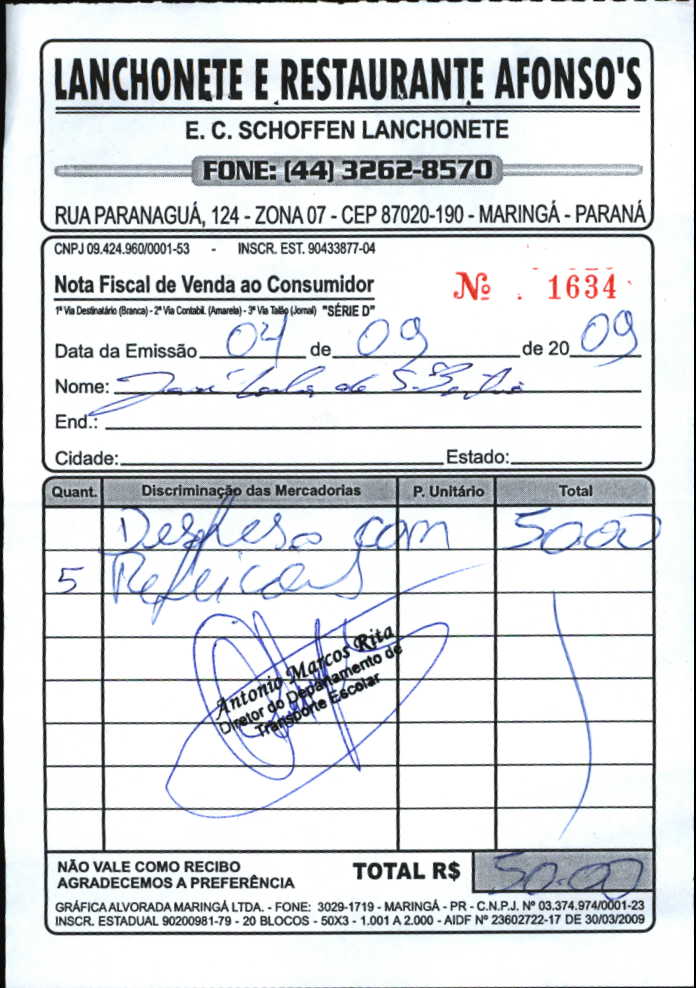 LANCHONETE E RESTAURANTE AFONSO'S
E. C. SCHOFFEN LANCHONETE
FONE: (44) 3262-8570
RUA PARANAGUÁ, 124 - ZONA 07 - CEP 87020-190 - MARINGÁ - PARANÁ
CNPJ 09.424.960/0001-53 - INSCR. EST. 90433877-04
Nota Fiscal de Venda ao Consumidor Nº 1634
1ª Via Destinatário (Branca) - 2ª Via Contabil. (Amarela) - 3ª Via Talão (Jornal) "SÉRIE D"
Data da Emissão 04 de 09 de 2009
Nome: José de S.
End.:
Cidade: Estado:
Quant. Discriminação das Mercadorias P. Unitário Total
Despesa com 50.00
5 Refeicoes
Antonio Marcos Rita
Diretor do Departamento de
Transporte Escolar
NÃO VALE COMO RECIBO
AGRADECEMOS A PREFERÊNCIA
TOTAL R$ 50.00
GRÁFICA ALVORADA MARINGÁ LTDA. - FONE: 3029-1719 - MARINGÁ - PR - C.N.P.J. Nº 03.374.974/0001-23
INSCR. ESTADUAL 90200981-79 - 20 BLOCOS - 50X3 - 1.001 A 2.000 - AIDF Nº 23602722-17 DE 30/03/2009